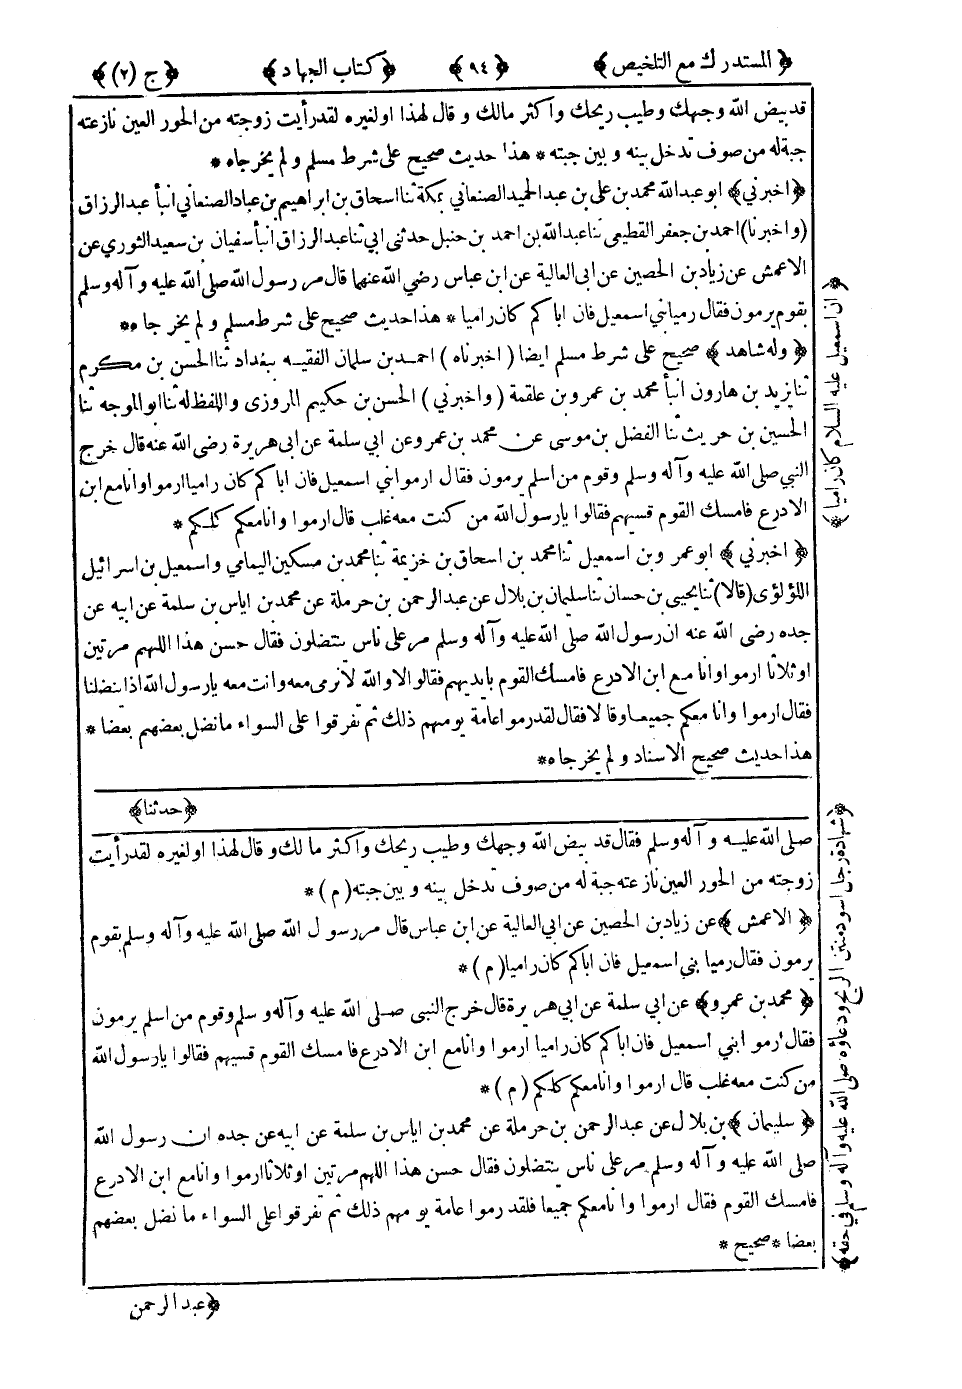 ﴿المستدرك مع التلخيص﴾ ﴿٩٤﴾ ﴿كتاب الجهاد﴾ ﴿ج (٢)﴾
قد بيض الله وجهك وطيب ريحك واكثر مالك و قال لهذا او لغيره لقد رأيت زوجته من الحور العين نازعته
جبة له من صوف تدخل بينه و بين جبته * هذا حديث صحيح على شرط مسلم و لم يخرجاه *
﴿اخبرني﴾ ابو عبد الله محمد بن على بن عبد الحميد الصنعاني بمكة ثنا اسحاق بن ابراهيم بن عباد الصنعاني انبأ عبد الرزاق
(واخبرنا) احمد بن جعفر القطيعى ثنا عبد الله بن احمد بن حنبل حدثنى ابي ثنا عبد الرزاق انبأ سفيان بن سعيد الثوري عن
الاعمش عن زياد بن الحصين عن ابى العالية عن ابن عباس رضي الله عنهما قال مر رسول الله صلى الله عليه و آله وسلم
بقوم يرمون فقال رميا بني اسمعيل فان ابا كم كان راميا * هذا حديث صحيح على شرط مسلم و لم يخر جاه *
﴿وله شاهد﴾ صحيح على شرط مسلم ايضا (اخبرناه) احمد بن سلمان الفقيه ببغداد ثنا الحسن بن مكرم
ثنا يزيد بن هارون انبأ محمد بن عمرو بن علقمة (واخبرني) الحسن بن حكيم المروزى واللفظ له ثنا ابو الموجه ثنا
الحسين بن حريث ثنا الفضل بن موسى عن محمد بن عمرو عن ابي سلمة عن ابى هريرة رضى الله عنه قال خرج
النبي صلى الله عليه وآله وسلم وقوم من اسلم يرمون فقال ارموا بني اسمعيل فان ابا كم كان راميا ارموا وانا مع ابن
الادرع فامسك القوم قسيهم فقالوا يا رسول الله من كنت معه غلب قال ارموا وانا معكم كلكم *
﴿اخبرني﴾ ابو عمر وبن اسمعيل ثنا محمد بن اسحاق بن خزيمة ثنا محمد بن مسكين اليمامي واسمعيل بن اسرائيل
اللؤلؤى (قالا) ثنا يحيى بن حسان ثنا سليمان بن بلال عن عبد الرحمن بن حرملة عن محمد بن اياس بن سلمة عن ابيه عن
جده رضى الله عنه ان رسول الله صلى الله عليه وآله وسلم مر على ناس ينتضلون فقال حسن هذا اللهم مرتين
او ثلاثا ارموا وانا مع ابن الادرع فامسك القوم بايديهم فقالوا لا والله لا نرمى معه وانت معه يا رسول الله اذا ينضلنا
فقال ارموا وانا معكم جميعا وقا لا فقال لقد رموا عامة يومهم ذلك ثم تفرقوا على السواء ما نضل بعضهم بعضا *
هذا حديث صحيح الاسناد و لم يخرجاه *
﴿حدثنا﴾
صلى الله عليه و آله وسلم فقال قد بيض الله وجهك وطيب ريحك واكثر ما لك و قال لهذا او لغيره لقد رأيت
زوجته من الحور العين نازعته جبة له من صوف تدخل بينه و بين جبته (م) *
﴿الاعمش﴾ عن زياد بن الحصين عن ابي العالية عن ابن عباس قال مر رسول الله صلى الله عليه وآله وسلم بقوم
يرمون فقال رميا بني اسمعيل فان ابا كم كان راميا (م) *
﴿محمد بن عمرو﴾ عن ابي سلمة عن ابي هريرة قال خرج النبى صلى الله عليه وآله و سلم وقوم من اسلم يرمون
فقال ارموا بني اسمعيل فان ابا كم كان راميا ارموا وانا مع ابن الادرع فامسك القوم قسيهم فقالوا يا رسول الله
من كنت معه غلب قال ارموا وانا معكم كلكم (م) *
﴿سليمان﴾ بن بلال عن عبد الرحمن بن حرملة عن محمد بن اياس بن سلمة عن ابيه عن جده ان رسول الله
صلى الله عليه و آله وسلم مر على ناس ينتضلون فقال حسن هذا اللهم مرتين او ثلاثا ارموا وانا مع ابن الادرع
فامسك القوم فقال ارموا وانا معكم جميعا فلقد رموا عامة يومهم ذلك ثم تفرقوا على السواء ما نضل بعضهم
بعضا * صحيح *
﴿عبد الرحمن
﴿ان اسمعيل عليه السلام كان راميا﴾
﴿شهادة رجل اسود منتن الريح ودعاؤه صلى الله عليه وآله وسلم في حقه﴾